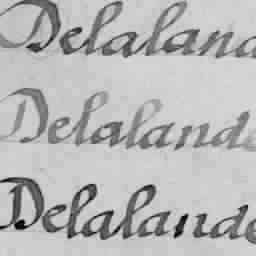 Delaland
Delalande
Delalande